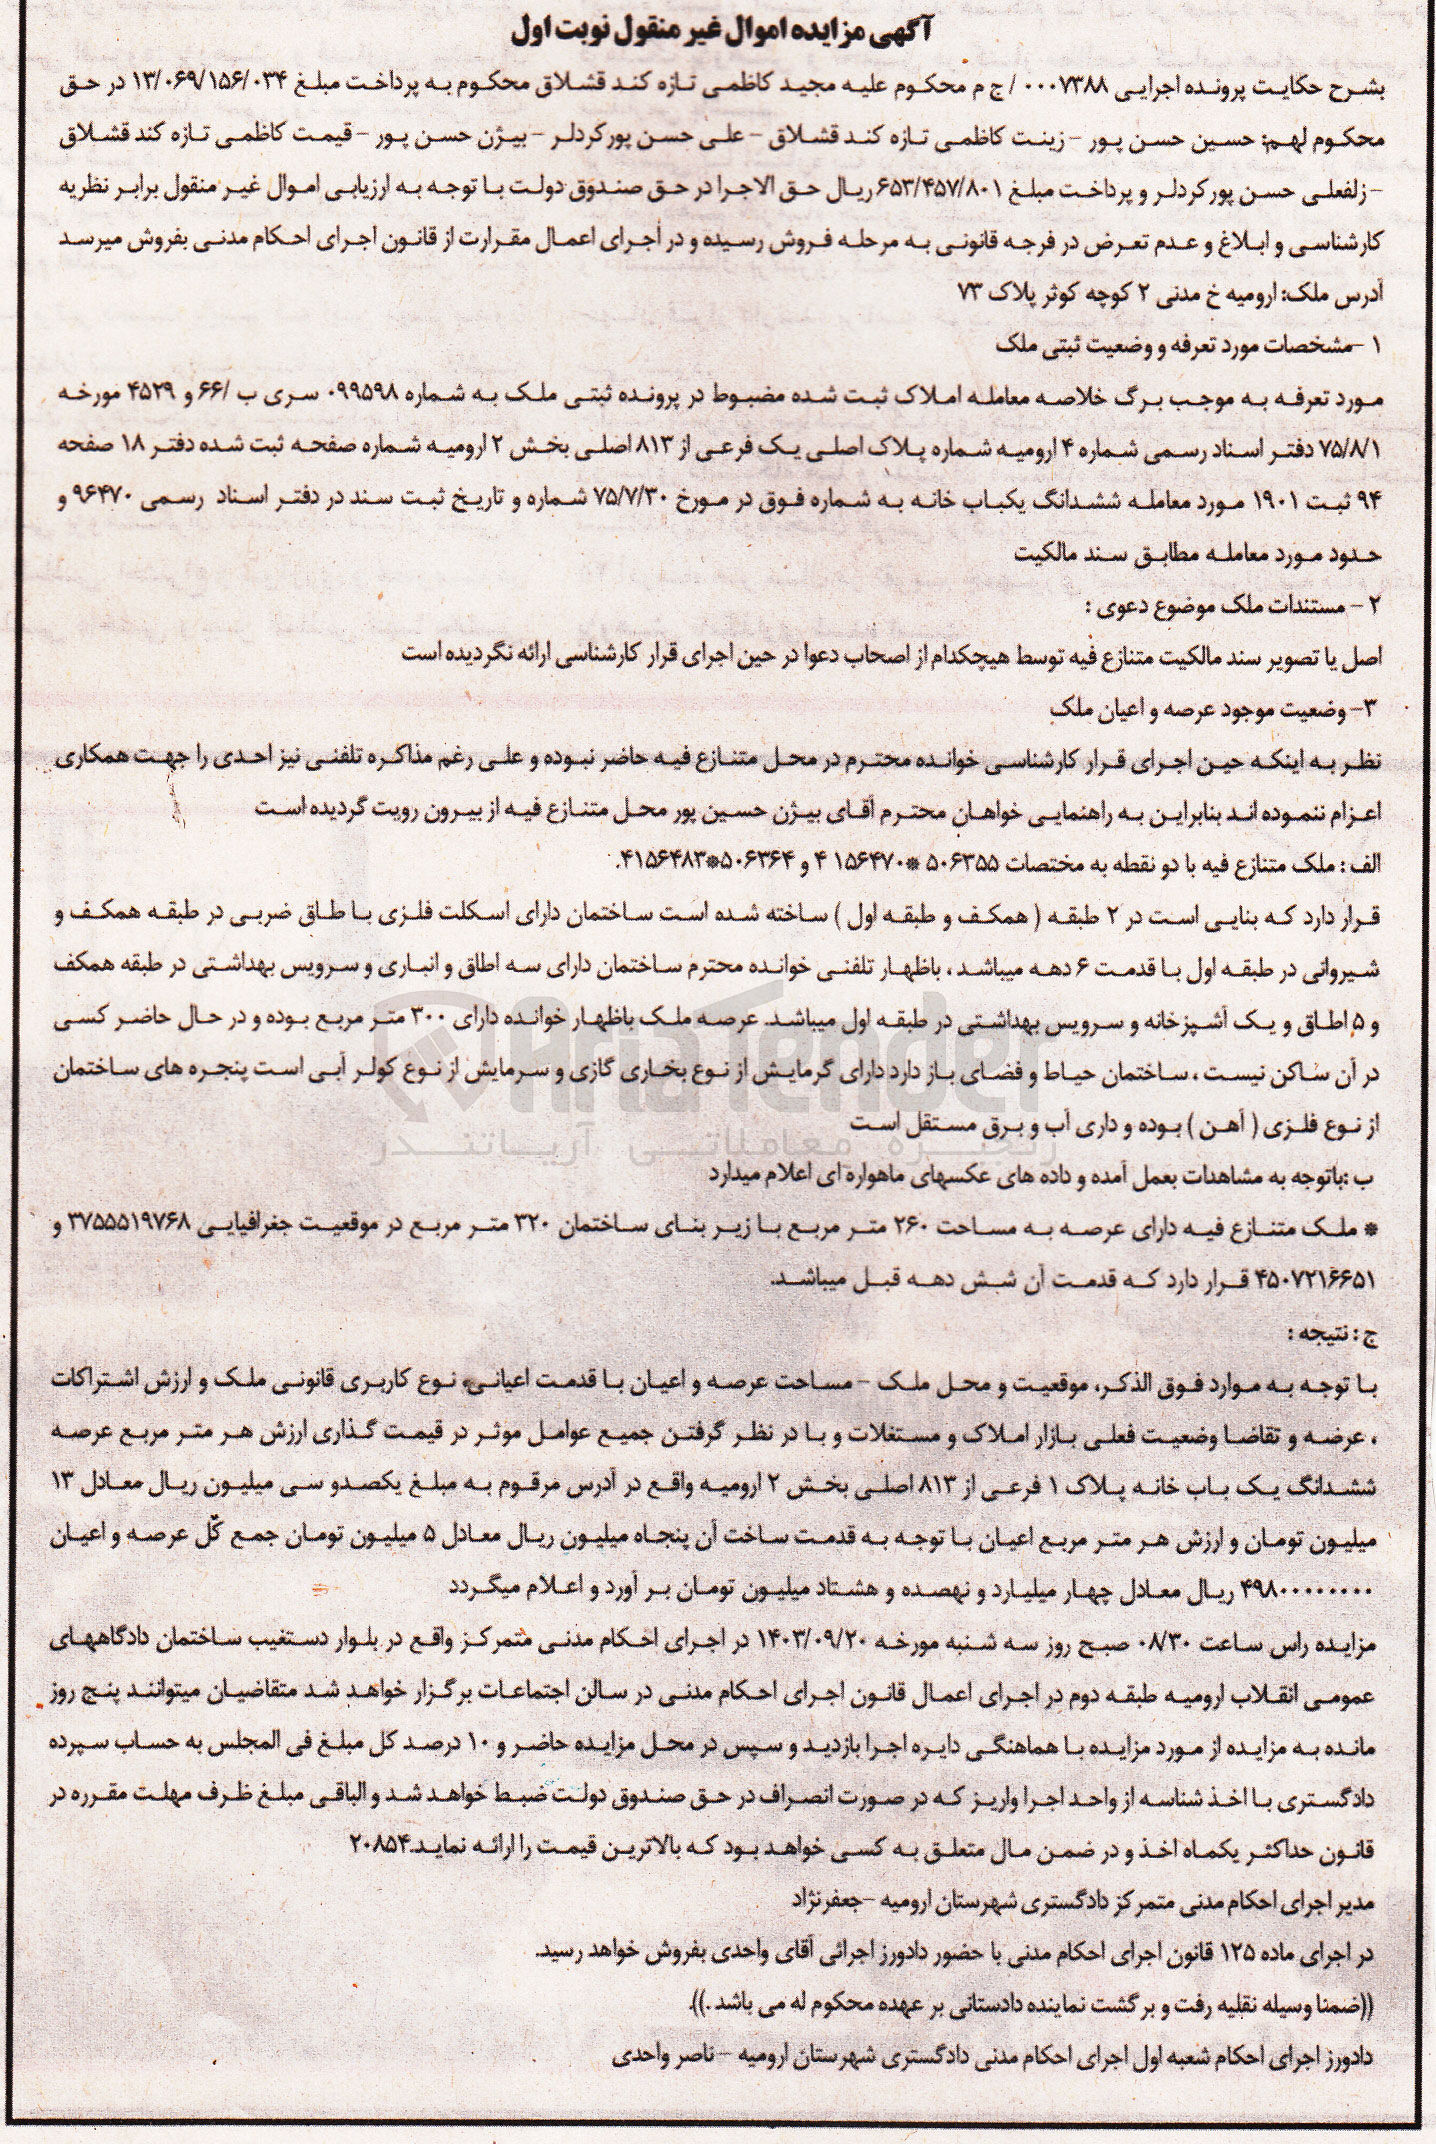 آگهی مزایده اموال غیر منقول نوبت اول
بشرح حکایت پرونده اجرایی ۰۰۰۷۳۸۸ / ج م محکوم علیه مجید کاظمی تازه کند قشلاق محکوم به پرداخت مبلغ ۱۳/۰۶۹/۱۵۶/۰۳۴ در حق
محکوم لهم: حسین حسن پور – زینت کاظمی تازه کند قشلاق – علی حسن پورکردلر – بیژن حسن پور – قیمت کاظمی تازه کند قشلاق
–زلفعلی حسن پورکردلر و پرداخت مبلغ ۶۵۳/۴۵۷/۸۰۱ ریال حق الاجرا در حق صندوق دولت با توجه به ارزیابی اموال غیر منقول برابر نظریه
کارشناسی و ابلاغ و عدم تعرض در فرجه قانونی به مرحله فروش رسیده و در اجرای اعمال مقرارت از قانون اجرای احکام مدنی بفروش میرسد
آدرس ملک: ارومیه خ مدنی ۲ کوچه کوثر پلاک ۷۳
۱ –مشخصات مورد تعرفه و وضعیت ثبتی ملک
مورد تعرفه به موجب برگ خلاصه معامله املاک ثبت شده مضبوط در پرونده ثبتی ملک به شماره ۰۹۹۵۹۸ سری ب /۶۶ و ۴۵۲۹ مورخه
۷۵/۸/۱ دفتر اسناد رسمی شماره ۴ ارومیه شماره پلاک اصلی یک فرعی از ۸۱۳ اصلی بخش ۲ ارومیه شماره صفحه ثبت شده دفتر ۱۸ صفحه
۹۴ ثبت ۱۹۰۱ مورد معامله ششدانگ یکباب خانه به شماره فوق در مورخ ۷۵/۷/۳۰ شماره و تاریخ ثبت سند در دفتر اسناد رسمی ۹۶۴۷۰ و
حدود مورد معامله مطابق سند مالکیت
۲ – مستندات ملک موضوع دعوی :
اصل یا تصویر سند مالکیت متنازع فیه توسط هیچکدام از اصحاب دعوا در حین اجرای قرار کارشناسی ارائه نگردیده است
۳– وضعیت موجود عرصه و اعیان ملک
نظر به اینکه حین اجرای قرار کارشناسی خوانده محترم در محل متنازع فیه حاضر نبوده و علی رغم مذاکره تلفنی نیز احدی را جهت همکاری
اعزام ننموده اند بنابراین به راهنمایی خواهان محترم آقای بیژن حسین پور محل متنازع فیه از بیرون رویت گردیده است
الف : ملک متنازع فیه با دو نقطه به مختصات ۵۰۶۳۵۵ *۱۵۶۴۷۰ ۴ و ۵۰۶۳۶۴*۴۱۵۶۴۸۳.
قرار دارد که بنایی است در ۲ طبقه ( همکف و طبقه اول ) ساخته شده است ساختمان دارای اسکلت فلزی با طاق ضربی در طبقه همکف و
شیروانی در طبقه اول با قدمت ۶ دهه میباشد ، باظهار تلفنی خوانده محترم ساختمان دارای سه اطاق و انباری و سرویس بهداشتی در طبقه همکف
و ۵ اطاق و یک آشپزخانه و سرویس بهداشتی در طبقه اول میباشد. عرصه ملک باظهار خوانده دارای ۳۰۰ متر مربع بوده و در حال حاضر کسی
در آن ساکن نیست ، ساختمان حیاط و فضای باز دارد دارای گرمایش از نوع بخاری گازی و سرمایش از نوع کولر آبی است پنجره های ساختمان
از نوع فلزی ( آهن ) بوده و داری آب و برق مستقل است
ب :باتوجه به مشاهدات بعمل آمده و داده های عکسهای ماهواره ای اعلام میدارد
* ملک متنازع فیه دارای عرصه به مساحت ۲۶۰ متر مربع با زیر بنای ساختمان ۳۲۰ متر مربع در موقعیت جغرافیایی ۳۷۵۵۵۱۹۷۶۸ و
۴۵۰۷۲۱۶۶۵۱ قرار دارد که قدمت آن شش دهه قبل میباشد.
ج : نتیجه :
با توجه به موارد فوق الذکر، موقعیت و محل ملک – مساحت عرصه و اعیان با قدمت اعیانی، نوع کاربری قانونی ملک و ارزش اشتراکات
، عرضه و تقاضا وضعیت فعلی بازار املاک و مستغلات و با در نظر گرفتن جمیع عوامل موثر در قیمت گذاری ارزش هر متر مربع عرصه
ششدانگ یک باب خانه پلاک ۱ فرعی از ۸۱۳ اصلی بخش ۲ ارومیه واقع در آدرس مرقوم به مبلغ یکصدو سی میلیون ریال معادل ۱۳
میلیون تومان و ارزش هر متر مربع اعیان با توجه به قدمت ساخت آن پنجاه میلیون ریال معادل ۵ میلیون تومان جمع کل عرصه و اعیان
۴۹۸۰۰۰۰۰۰۰۰ ریال معادل چهار میلیارد و نهصده و هشتاد میلیون تومان بر آورد و اعلام میگردد
مزایده راس ساعت ۰۸/۳۰ صبح روز سه شنبه مورخه ۱۴۰۳/۰۹/۲۰ در اجرای احکام مدنی متمرکز واقع در بلوار دستغیب ساختمان دادگاههای
عمومی انقلاب ارومیه طبقه دوم در اجرای اعمال قانون اجرای احکام مدنی در سالن اجتماعات برگزار خواهد شد متقاضیان میتوانند پنج روز
مانده به مزایده از مورد مزایده با هماهنگی دایره اجرا بازدید و سپس در محل مزایده حاضر و ۱۰ درصد کل مبلغ فی المجلس به حساب سپرده
دادگستری با اخذ شناسه از واحد اجرا واریز که در صورت انصراف در حق صندوق دولت ضبط خواهد شد و الباقی مبلغ ظرف مهلت مقرره در
قانون حداکثر یکماه اخذ و در ضمن مال متعلق به کسی خواهد بود که بالاترین قیمت را ارائه نماید.۲۰۸۵۴
مدیر اجرای احکام مدنی متمرکز دادگستری شهرستان ارومیه –جعفرنژاد
در اجرای ماده ۱۲۵ قانون اجرای احکام مدنی با حضور دادورز اجرائی آقای واحدی بفروش خواهد رسید.
((ضمنا وسیله نقلیه رفت و برگشت نماینده دادستانی بر عهده محکوم له می باشد .)).
دادورز اجرای احکام شعبه اول اجرای احکام مدنی دادگستری شهرستان ارومیه – ناصر واحدی
AriaTender
زنجیره معاملاتی آریاتندر